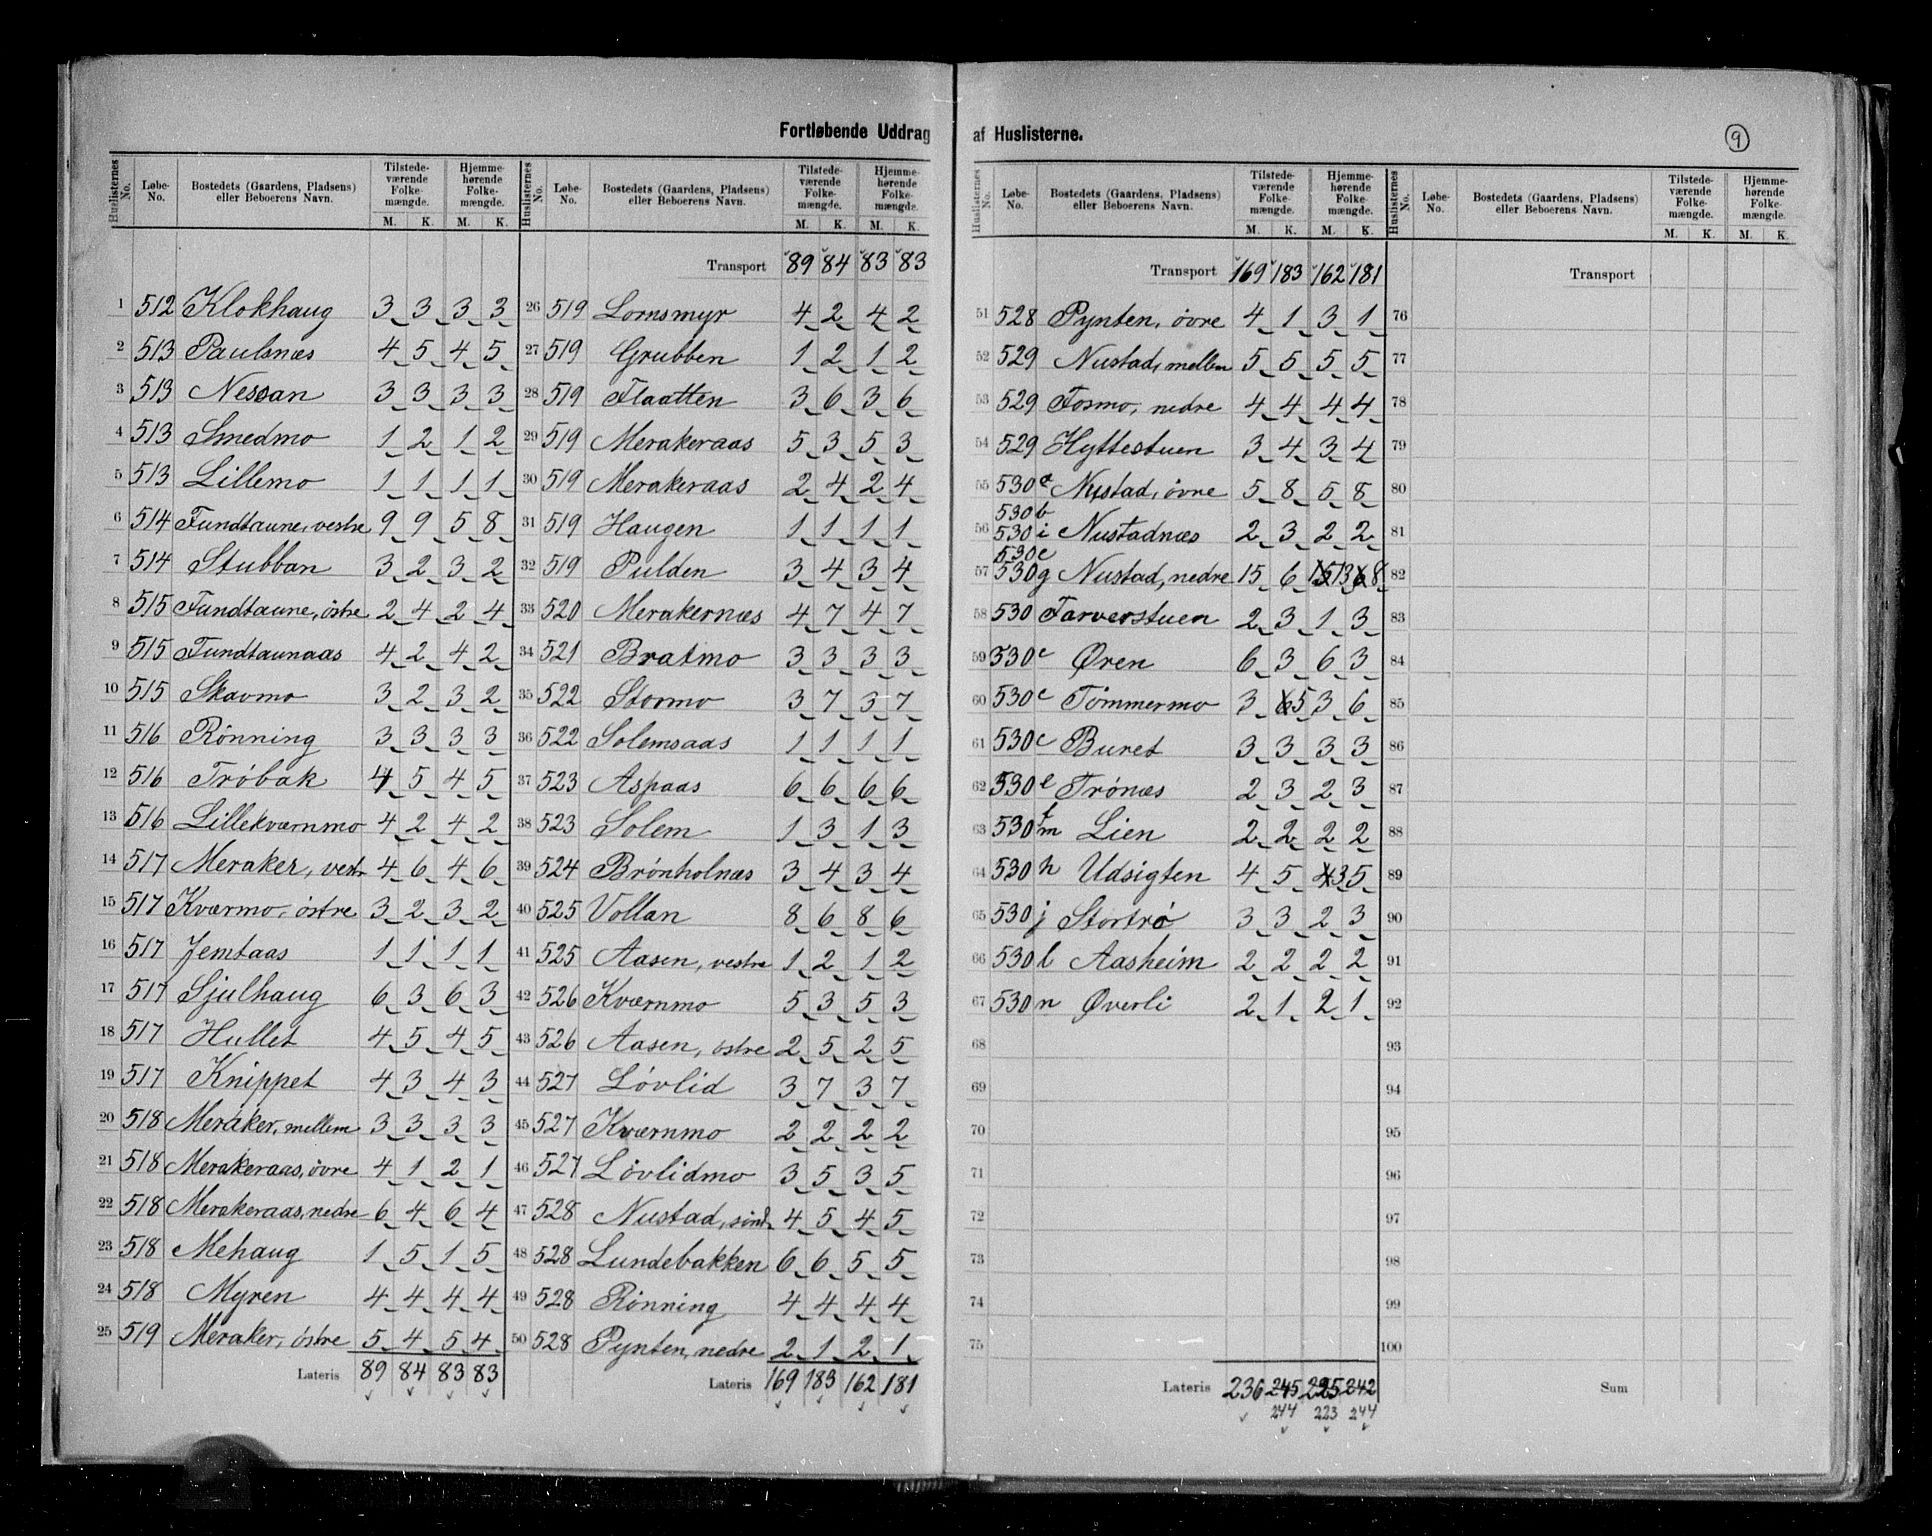 Fortløbende Uddrag af Huslisterne.
9
Huslisternes No. Løbe-No. Bostedets (Gaardens, Pladsens) eller Beboerens Navn. Tilstede-værende Folke-mængde. M. K. Hjemme-hørende Folke-mængde. M. K.
1 512 Klokhaug 3 3 3 3
2 513 Paulsnæs 4 5 4 5
3 513 Nessan 3 3 3 3
4 513 Smedmo 1 2 1 2
5 513 Lillemo 1 1 1 1
6 514 Fundtaune, vestre 9 9 5 8
7 514 Stubban 3 2 3 2
8 515 Fundtaune, östre 2 4 2 4
9 515 Fundtaunaas 4 2 4 2
10 515 Skavmo 3 2 3 2
11 516 Rönning 3 3 3 3
12 516 Tröbak 4 5 4 5
13 516 Lillekværnmo 4 2 4 2
14 517 Meraker, vestr 4 6 4 6
15 517 Kværmo, östre 3 2 3 2
16 517 Jemtaas 1 1 1 1
17 517 Sjulhaug 6 3 6 3
18 517 Hullet 4 5 4 5
19 517 Knippet 4 3 4 3
20 518 Meraker, mellem 3 3 3 3
21 518 Merakeraas, övre 4 1 2 1
22 518 Merakeraas, nedre 6 4 6 4
23 518 Mehaug 1 5 1 5
24 518 Myren 4 4 4 4
25 519 Meraker, östre 5 4 5 4
Lateris 89 84 83 83
Huslisternes No. Løbe-No. Bostedets (Gaardens, Pladsens) eller Beboerens Navn. Tilstede-værende Folke-mængde. M. K. Hjemme-hørende Folke-mængde. M. K.
Transport 89 84 83 83
26 519 Lornsmyr 4 2 4 2
27 519 Grubben 1 2 1 2
28 519 Flaatten 3 6 3 6
29 519 Merakeraas 5 3 5 3
30 519 Merakeraas 2 4 2 4
31 519 Haugen 1 1 1 1
32 519 Pulden 3 4 3 4
33 520 Merakernæs 4 7 4 7
34 521 Bratmo 3 3 3 3
35 522 Stormo 3 7 3 7
36 522 Solemsaas 1 1 1 1
37 523 Aspaas 6 6 6 6
38 523 Solem 1 3 1 3
39 524 Brönholnæs 3 4 3 4
40 525 Vollan 8 6 8 6
41 525 Aasen, vestre 1 2 1 2
42 526 Kværnmo 5 3 5 3
43 526 Aasen, östre 2 5 2 5
44 527 Lövlid 3 7 3 7
45 527 Kværnmo 2 2 2 2
46 527 Lövlidmo 3 5 3 5
47 528 Nustad, sönd. 4 5 4 5
48 528 Lundebakken 6 6 5 5
49 528 Rönning 4 4 4 4
50 528 Pynten, nedre 2 1 2 1
Lateris 169 183 162 181
Huslisternes No. Løbe-No. Bostedets (Gaardens, Pladsens) eller Beboerens Navn. Tilstede-værende Folke-mængde. M. K. Hjemme-hørende Folke-mængde. M. K.
Transport 169 183 162 181
51 528 Pynten, övre 4 1 3 1
52 529 Nustad, mellem 5 5 5 5
53 529 Fosmo, nedre 4 4 4 4
54 529 Hyttestuen 3 4 3 4
55 530 a Nustad, övre 5 8 5 8
530 b
56 530 i Nustadnæs 2 3 2 2
530 c
57 530 g Nustad, nedre 15 6 15 13 6 8
58 530 Farverstuen 2 3 1 3
59 530 c Øren 6 3 6 3
60 530 c Tömmermo 3 6 5 3 6
61 530 c Buret 3 3 3 3
62 530 e Trönæs 2 3 2 3
63 530 f m Lien 2 2 2 2
64 530 h Udsigten 4 5 4 3 5
65 530 j Stortrö 3 3 2 3
66 530 l Aasheim 2 2 2 2
67 530 n Øverli 2 1 2 1
68
69
70
71
72
73
74
75
Lateris 236 245 225 242
244 223 244
Huslisternes No. Løbe-No. Bostedets (Gaardens, Pladsens) eller Beboerens Navn. Tilstede-værende Folke-mængde. M. K. Hjemme-hørende Folke-mængde. M. K.
Transport
76
77
78
79
80
81
82
83
84
85
86
87
88
89
90
91
92
93
94
95
96
97
98
99
100
Sum